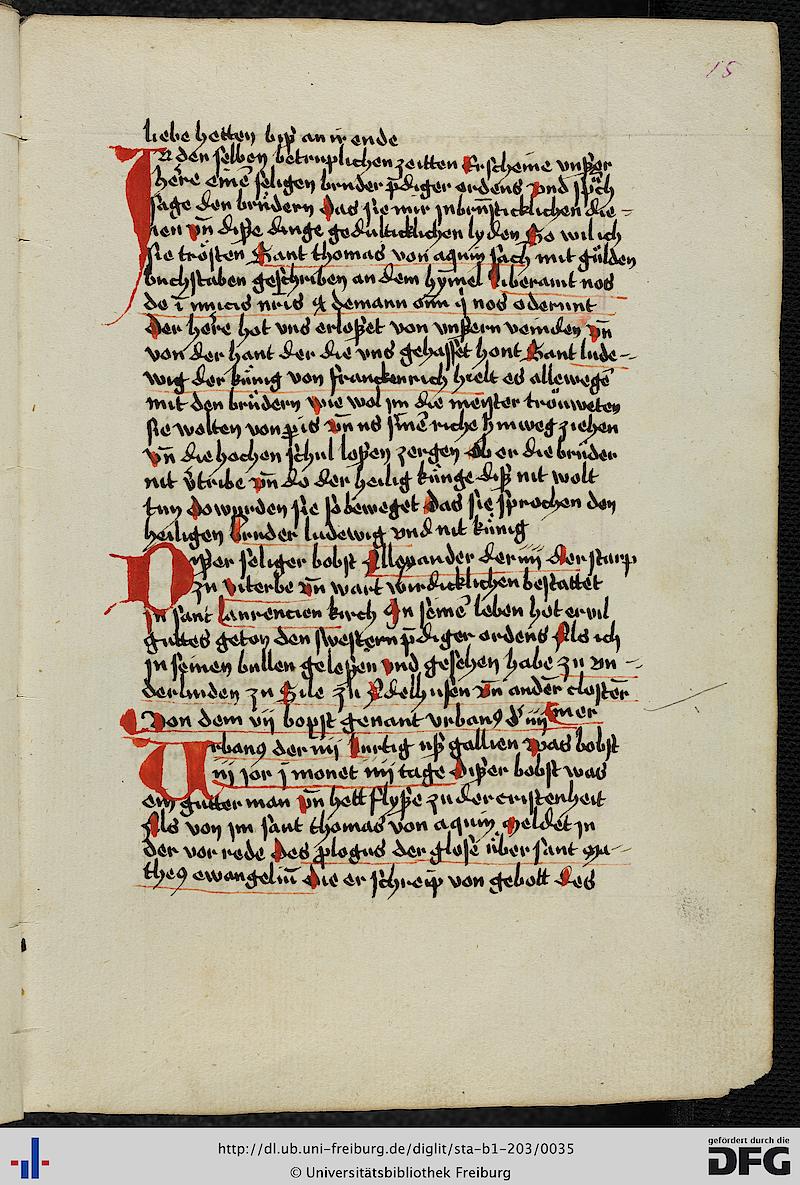 15
liebe hetten byß an ir ende
In den selben betrüplichen zeitten Erscheine vnßer
here einē seligen bruder p̄diger ordens vnd sp̊ch
sage den brüdern Das sie mir jnbrūsticklichen die-
nen vn̄ diße dinge gedulticklichen lyden So wil ich
sie trösten Sant thomas von aquin sach mit gulden
buchstaben geschriben an dem hymel liberauit nos
de īimicis nris
Der here het vns erloßet von vnßern veinden vn̄
von der hant der die vns gehasset hont Sant lude-
wig der künig von franckenrich hielt es allewegē
mit den brüdern wie wol jm die meister tröuweten
sie wolten von p̱is vn̄ us sinē riche hinweg ziehen
vn̄ die hochen schul loßen zergen Ob er die brüder
nit v̄tribe vn̄ do der heilig künge diß nit wolt
tun Do wurden sie so beweget Das sie sprochen den
heiligen bruder ludewig vnd nit künig
Dißer seliger bobst Allexander der iiij Der starp
zu viterbe vn̄ wart wirdicklichen bestattet
in sant laurencien kirch In seinē leben het er vil
guttes geton den swestern p̄diger ordens Als ich
jn seinen bullen geleßen vnd gesehen habe zu vn-
derlinden zu Sile zu Adelhusen vn̄ anděr clostěr
Von dem vij bopst genant vrbanꝰ d' iiij
Urbanꝰ der iiij burtig uß gallien was bobst
iij jor j monet iiij tage Dißer bobst was
ein gutter man vn̄ hett flyße zu der cristenheit
Als von jm sant thomas von aquin meldet jn
der vor rede Des p̱logus der glose über sant ma-
theꝰ ewangeliū Die er schreip von gebott des
http://dl.ub.uni-freiburg.de/diglit/sta-b1-203/0035
© Universitätsbibliothek Freiburg
gefördert durch die
DFG